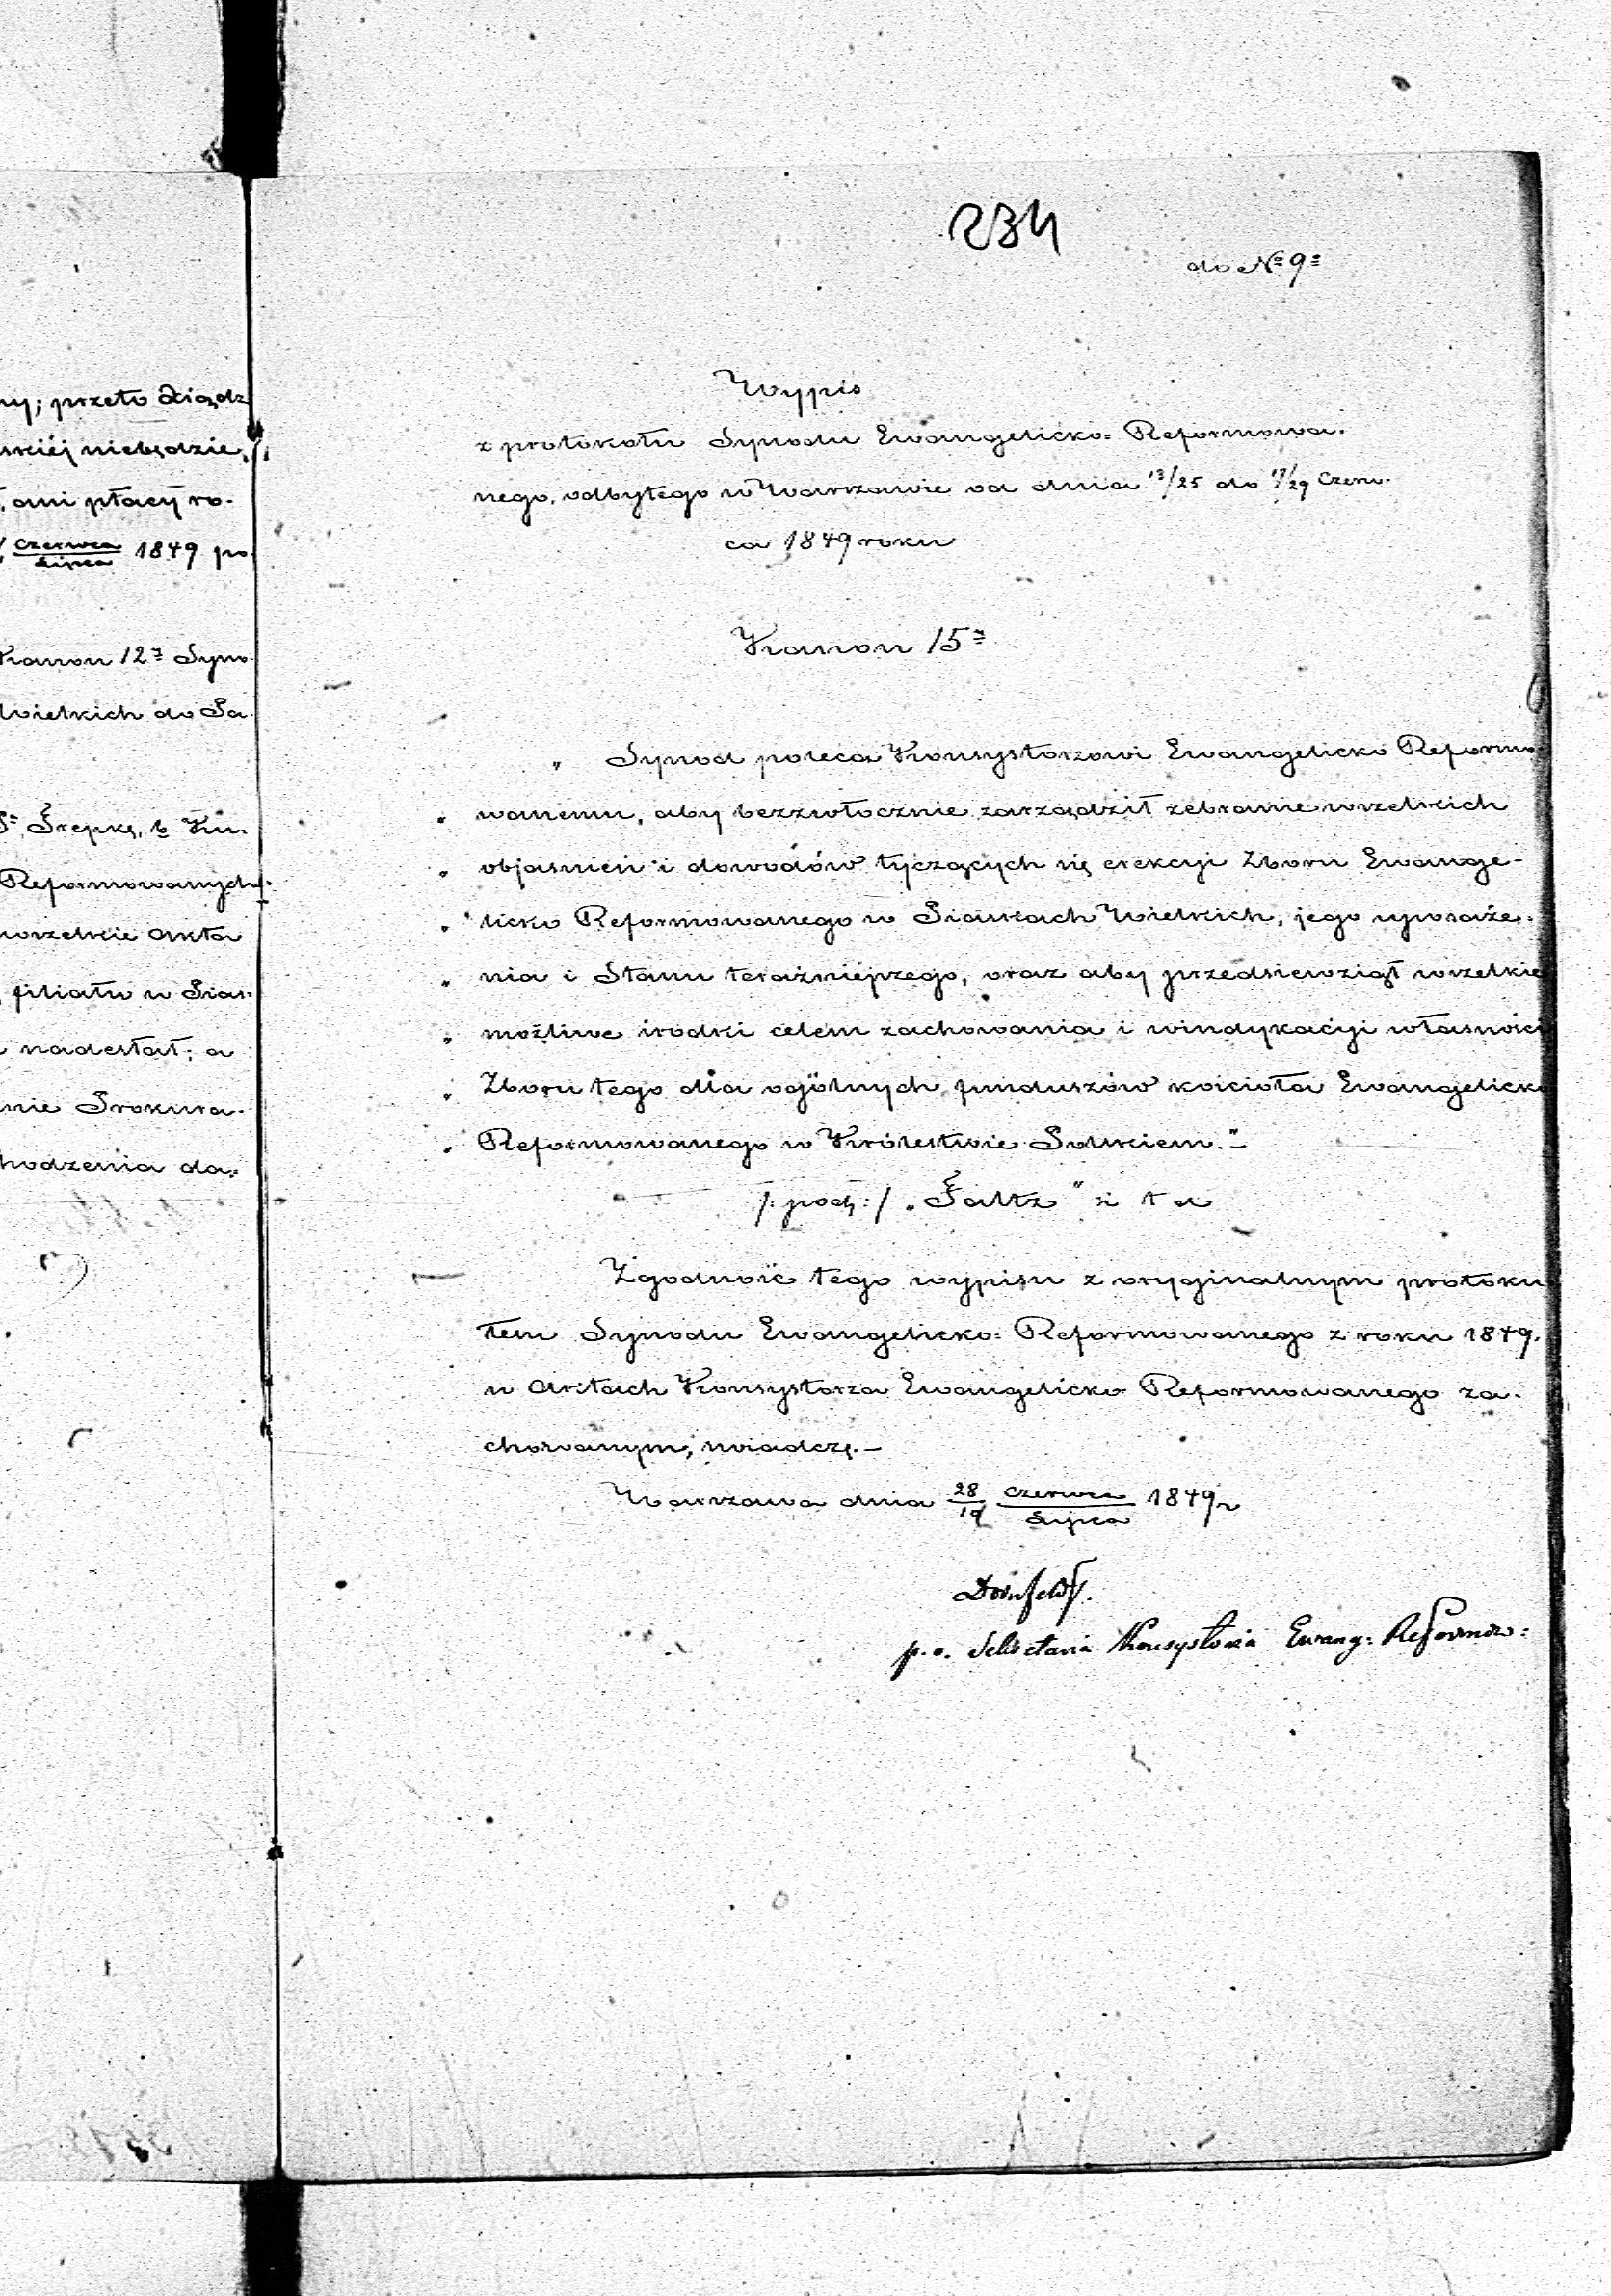 ny; przeto Xiądz
skiéj niebędzie,
, ani płacy ro-
czerwca
Lipca 1849 po
Kanon 12ź Syno-
Wielkich do Pa-
Krępkę, b. Ku-
Reformowanych
wszelkie Akta
filiału w Sias-
nadesłał; a
nie Prokura-
hodzenia da-
234
do Nº 9º
Wypis
z protokołu Synodu Ewangelicko-Reformowa-
nego, odbytego w Warszawie od dnia 13/25 do 17/29 Czerw-
ca 1849 roku
Kanon 15
„ Synod poleca Konsystorzowi Ewangelicko Reformo-
„ wanemu, aby bezzwłocznie zarządził zebranie wszelkich
„ objasnień i dowodów tyczących się erekcyi Zboru Ewange-
„ licko Reformowanego w Siankach Wielkich, jego uposaże-
„ nia i Stanu teraźniéjszego, oraz aby przedsiewziął wszelkie
„ możliwe środki celem zachowania i windykacyi własności
„ Zboru tego dla ogólnych funduszów kościoła Ewangelicko
„ Reformowanego w Królestwie Polskiem."–
/: podp: / „
Zgodność tego wypisu z oryginalnym protoku-
łem Synodu Ewangelicko-Reformowanego z roku 1849.
w Aktach Konsystorza Ewangelicko Reformowanego za-
chowanym, swiadczę.–
Warszawa dnia 28/10 czerwca/Lipca 1849 r
Dornfeldt.
p. o. Sekretarza Konsystorza Ewang: Reformow: